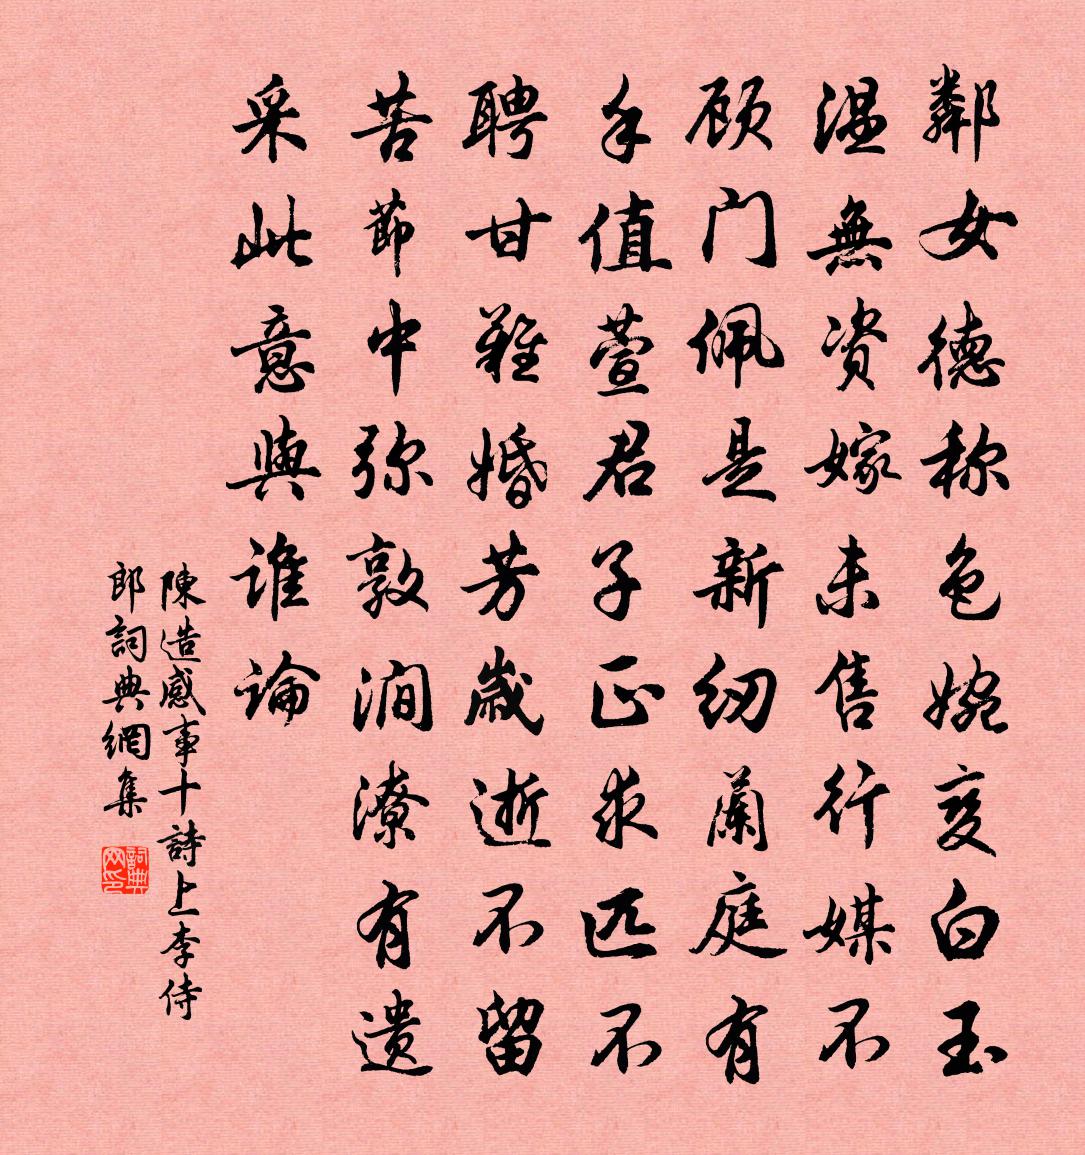 鄰女德称色婉娈白玉
温無资嫁未售行媒不
顾门佩是新纫蘭庭有
手值萱君子正求匹不
聘甘難婚芳歲逝不留
苦節中弥敦涧潦有遗
采此意與谁論
陳造感事十詩上李侍
郎詞典網集
詞典网印